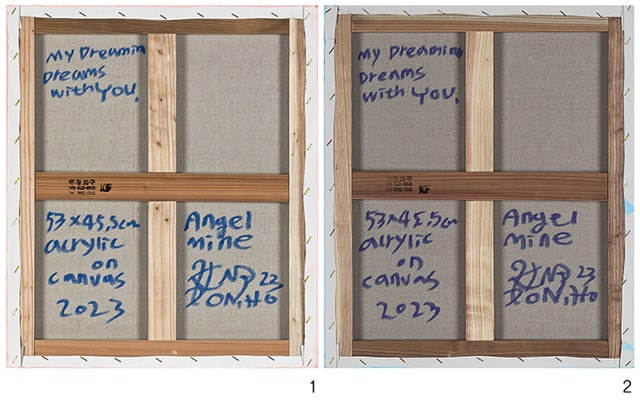 My Dreamin
Dreams
with You.
53x45,5cm
acrylic
on
canvas
2023
Angel
mine
23
1
My Dreamin
Dreams
with You.
53x45,5cm
acrylic
on
canvas
2023
Angel
mine
23
2